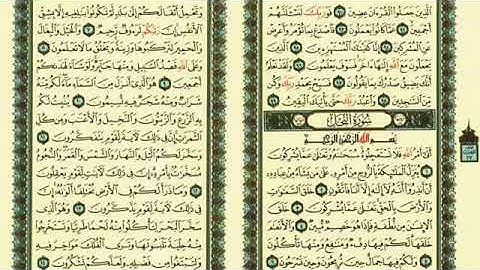 ٱلَّذِينَ جَعَلُوا۟ ٱلْقُرْءَانَ عِضِينَ ٩١ فَوَرَبِّكَ لَنَسْـَٔلَنَّهُمْ
أَجْمَعِينَ ٩٢ عَمَّا كَانُوا۟ يَعْمَلُونَ ٩٣ فَٱصْدَعْ بِمَا تُؤْمَرُ وَأَعْرِضْ
عَنِ ٱلْمُشْرِكِينَ ٩٤ إِنَّا كَفَيْنَٰكَ ٱلْمُسْتَهْزِءِينَ ٩٥ ٱلَّذِينَ
يَجْعَلُونَ مَعَ ٱللَّهِ إِلَٰهًا ءَاخَرَ فَسَوْفَ يَعْلَمُونَ ٩٦ وَلَقَدْ نَعْلَمُ
أَنَّكَ يَضِيقُ صَدْرُكَ بِمَا يَقُولُونَ ٩٧ فَسَبِّحْ بِحَمْدِ رَبِّكَ وَكُن
مِّنَ ٱلسَّٰجِدِينَ ٩٨ وَٱعْبُدْ رَبَّكَ حَتَّىٰ يَأْتِيَكَ ٱلْيَقِينُ ٩٩
سُورَةُ النَّحْلِ
بِسْمِ ٱللَّهِ ٱلرَّحْمَٰنِ ٱلرَّحِيمِ
أَتَىٰٓ أَمْرُ ٱللَّهِ فَلَا تَسْتَعْجِلُوهُ سُبْحَٰنَهُۥ وَتَعَٰلَىٰ عَمَّا يُشْرِكُونَ
١ يُنَزِّلُ ٱلْمَلَٰٓئِكَةَ بِٱلرُّوحِ مِنْ أَمْرِهِۦ عَلَىٰ مَن يَشَآءُ مِنْ عِبَادِهِۦٓ
أَنْ أَنذِرُوٓا۟ أَنَّهُۥ لَآ إِلَٰهَ إِلَّآ أَنَا۠ فَٱتَّقُونِ ٢ خَلَقَ ٱلسَّمَٰوَٰتِ
وَٱلْأَرْضَ بِٱلْحَقِّ تَعَٰلَىٰ عَمَّا يُشْرِكُونَ ٣ خَلَقَ
ٱلْإِنسَٰنَ مِن نُّطْفَةٍ فَإِذَا هُوَ خَصِيمٌ مُّبِينٌ ٤ وَٱلْأَنْعَٰمَ
خَلَقَهَا لَكُمْ فِيهَا دِفْءٌ وَمَنَٰفِعُ وَمِنْهَا تَأْكُلُونَ
٥ وَلَكُمْ فِيهَا جَمَالٌ حِينَ تُرِيحُونَ وَحِينَ تَسْرَحُونَ ٦
وَتَحْمِلُ أَثْقَالَكُمْ إِلَىٰ بَلَدٍ لَّمْ تَكُونُوا۟ بَٰلِغِيهِ إِلَّا بِشِقِّ
ٱلْأَنفُسِ إِنَّ رَبَّكُمْ لَرَءُوفٌ رَّحِيمٌ ٧ وَٱلْخَيْلَ وَٱلْبِغَالَ
وَٱلْحَمِيرَ لِتَرْكَبُوهَا وَزِينَةً وَيَخْلُقُ مَا لَا تَعْلَمُونَ ٨
وَعَلَى ٱللَّهِ قَصْدُ ٱلسَّبِيلِ وَمِنْهَا جَآئِرٌ وَلَوْ شَآءَ لَهَدَىٰكُمْ
أَجْمَعِينَ ٩ هُوَ ٱلَّذِىٓ أَنزَلَ مِنَ ٱلسَّمَآءِ مَآءً لَّكُم مِّنْهُ
شَرَابٌ وَمِنْهُ شَجَرٌ فِيهِ تُسِيمُونَ ١٠ يُنۢبِتُ لَكُم
بِهِ ٱلزَّرْعَ وَٱلزَّيْتُونَ وَٱلنَّخِيلَ وَٱلْأَعْنَٰبَ وَمِن كُلِّ
ٱلثَّمَرَٰتِ إِنَّ فِى ذَٰلِكَ لَءَايَةً لِّقَوْمٍ يَتَفَكَّرُونَ ١١
وَسَخَّرَ لَكُمُ ٱلَّيْلَ وَٱلنَّهَارَ وَٱلشَّمْسَ وَٱلْقَمَرَ وَٱلنُّجُومُ
مُسَخَّرَٰتٌۢ بِأَمْرِهِۦٓ إِنَّ فِى ذَٰلِكَ لَءَايَٰتٍ لِّقَوْمٍ يَعْقِلُونَ
١٢ وَمَا ذَرَأَ لَكُمْ فِى ٱلْأَرْضِ مُخْتَلِفًا أَلْوَٰنُهُۥٓ إِنَّ
فِى ذَٰلِكَ لَءَايَةً لِّقَوْمٍ يَذَّكَّرُونَ ١٣ وَهُوَ ٱلَّذِى
سَخَّرَ ٱلْبَحْرَ لِتَأْكُلُوا۟ مِنْهُ لَحْمًا طَرِيًّا وَتَسْتَخْرِجُوا۟
مِنْهُ حِلْيَةً تَلْبَسُونَهَا وَتَرَى ٱلْفُلْكَ مَوَاخِرَ فِيهِ
وَلِتَبْتَغُوا۟ مِن فَضْلِهِۦ وَلَعَلَّكُمْ تَشْكُرُونَ ١٤